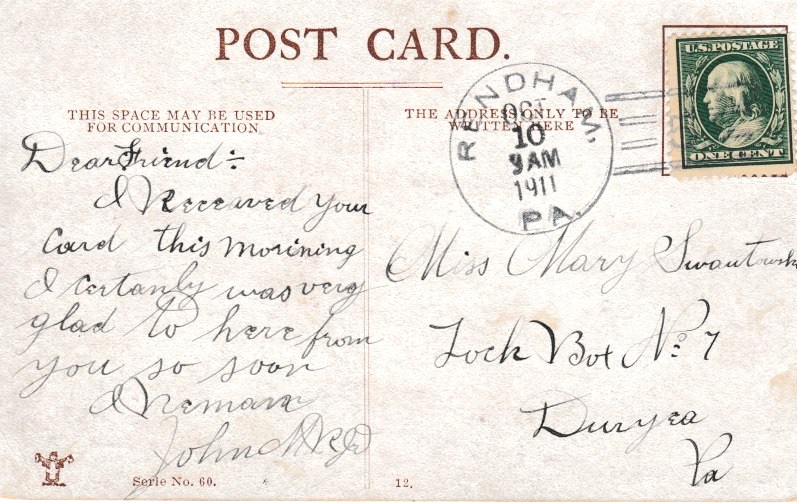 POST CARD.
THIS SPACE MAY BE USED
FOR COMMUNICATION
THE ADDRESS ONLY TO BE
WRITTEN HERE
RENDHAM,
OCT
10
9 AM
1911
PA.
U.S. POSTAGE
ONE CENT
Dear Friend :-
I Receaved your
Card this morining
I certanly was very
glad to here from
you so soon
I Remain
John
Miss Mary Swantowski
Lock Box No 7
Duryea
Pa
Serie No. 60.
12.